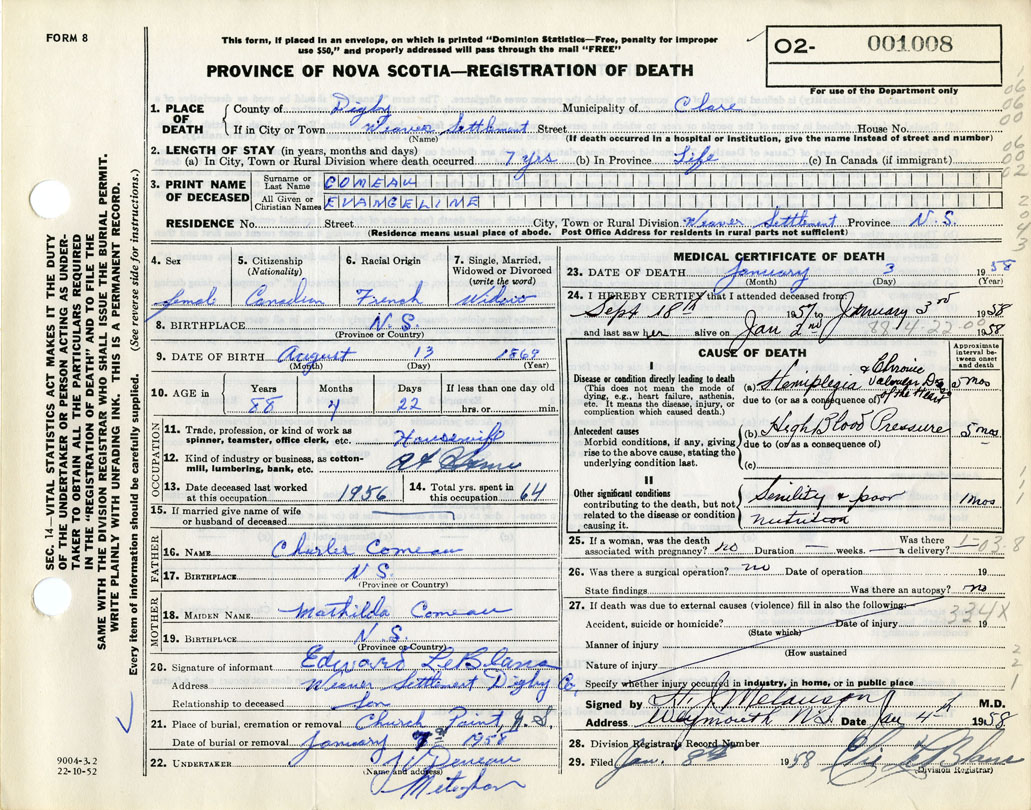 FORM 8
This form, if placed in an envelope, on which is printed "Dominion Statistics—Free, penalty for improper
use $50," and properly addressed will pass through the mail "FREE"
O2- 001008
For use of the Department only
PROVINCE OF NOVA SCOTIA—REGISTRATION OF DEATH
SEC. 14—VITAL STATISTICS ACT MAKES IT THE DUTY
OF THE UNDERTAKER OR PERSON ACTING AS UNDER-
TAKER TO OBTAIN ALL THE PARTICULARS REQUIRED
IN THE "REGISTRATION OF DEATH" AND TO FILE THE
SAME WITH THE DIVISION REGISTRAR WHO SHALL ISSUE THE BURIAL PERMIT.
WRITE PLAINLY WITH UNFADING INK. THIS IS A PERMANENT RECORD.
Every item of information should be carefully supplied. (See reverse side for instructions.)
1. PLACE OF DEATH County of Digby Municipality of Clare
If in City or Town Weaver Settlement Street House No.
(Name) (If death occurred in a hospital or institution, give the name instead of street and number)
2. LENGTH OF STAY (in years, months and days)
(a) In City, Town or Rural Division where death occurred 7 yrs (b) In Province Life (c) In Canada (if immigrant)
3. PRINT NAME OF DECEASED
Surname or Last Name COMEAU
All Given or Christian Names EVANGELINE
RESIDENCE No. Street City, Town or Rural Division Weaver Settlement Province N.S.
(Residence means usual place of abode. Post Office Address for residents in rural parts not sufficient)
4. Sex 5. Citizenship (Nationality) 6. Racial Origin 7. Single, Married, Widowed or Divorced (write the word)
female Canadian French Widow
8. BIRTHPLACE N.S.
(Province or Country)
9. DATE OF BIRTH August 13 1869
(Month) (Day) (Year)
10. AGE in Years Months Days If less than one day old
88 4 22 hrs. or min.
OCCUPATION
11. Trade, profession, or kind of work as spinner, teamster, office clerk, etc. Housewife
12. Kind of industry or business, as cotton-mill, lumbering, bank, etc. At Home
13. Date deceased last worked at this occupation 1956 14. Total yrs. spent in this occupation 64
15. If married give name of wife or husband of deceased
FATHER
16. NAME Charles Comeau
17. BIRTHPLACE N.S.
(Province or Country)
MOTHER
18. MAIDEN NAME Mathilda Comeau
19. BIRTHPLACE N.S.
(Province or Country)
20. Signature of informant Edward LeBlanc
Address Weaver Settlement Digby Co,
Relationship to deceased Son
21. Place of burial, cremation or removal Church Point, N.S,
Date of burial or removal January 7th 1958
22. UNDERTAKER Deneau
(Name and address)
Meteghan
9004-3.2
22-10-52
MEDICAL CERTIFICATE OF DEATH
23. DATE OF DEATH January 3 1958
(Month) (Day) (Year)
24. I HEREBY CERTIFY that I attended deceased from
Sept 18th 1957 to January 3rd 1958
and last saw her alive on Jan 2nd 1958
CAUSE OF DEATH
Approximate interval between onset and death
I
Disease or condition directly leading to death
(This does not mean the mode of dying, e.g., heart failure, asthenia, etc. It means the disease, injury, or complication which caused death.)
(a) Hemiplegia & Chronic Valvular Dis. of the Heart 5 mos
due to (or as a consequence of)
Antecedent causes
Morbid conditions, if any, giving rise to the above cause, stating the underlying condition last.
(b) High Blood Pressure 5 mos
due to (or as a consequence of)
(c)
II
Other significant conditions
contributing to the death, but not related to the disease or condition causing it.
Senility & poor nutrition 1 mos
25. If a woman, was the death associated with pregnancy? no Duration — weeks. Was there a delivery? —
1-03.8
26. Was there a surgical operation? no Date of operation 19
State findings Was there an autopsy? no
27. If death was due to external causes (violence) fill in also the following:
334X
Accident, suicide or homicide? Date of injury 19
(State which)
Manner of injury
(How sustained
Nature of injury
Specify whether injury occurred in industry, in home, or in public place
Signed by Melanson M.D.
Address Weymouth N.S. Date Jan 4th 1958
28. Division Registrar's Record Number
29. Filed Jan. 8th 1958 LeBlanc
(Division Registrar)